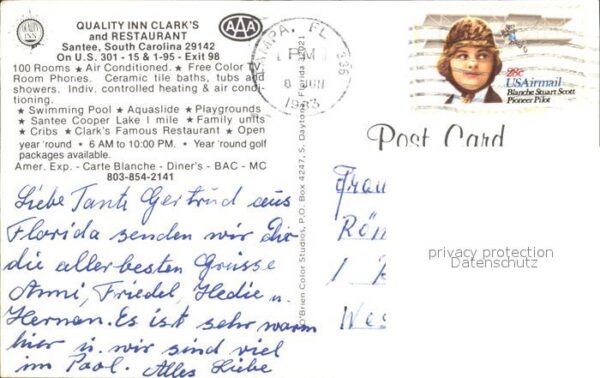 QUALITY INN CLARK'S
and RESTAURANT
Santee, South Carolina 29142
On U.S. 301 - 15 & 1-95 - Exit 98
100 Rooms ★ Air Conditioned. ★ Free Color TV
Room Phones. Ceramic tile baths, tubs and
showers. Indiv. controlled heating & air condi-
tioning.
★ Swimming Pool ★ Aquaslide ★ Playgrounds
★ Santee Cooper Lake 1 mile ★ Family units
★ Cribs ★ Clark's Famous Restaurant ★ Open
year 'round • 6 AM to 10:00 PM. ★ Year 'round golf
packages available.
Amer. Exp. - Carte Blanche - Diner's - BAC - MC
803-854-2141
QUALITY INN
AAA
TAMPA, FL 336
PM
8 JUN
1983
28c
USAirmail
Blanche Stuart Scott
Pioneer Pilot
Post Card
O'Brien Color Studios, P.O. Box 4247, S. Daytona, Florida 32021
Liebe Tante Gertrud aus
Florida senden wir Dir
die allerbesten Grüsse
Anni, Friedel, Hedie u.
Herman. Es ist sehr warm
hier u. wir sind viel
im Pool. Alles Liebe
Frau
Röm
1
Wes
privacy protection
Datenschutz